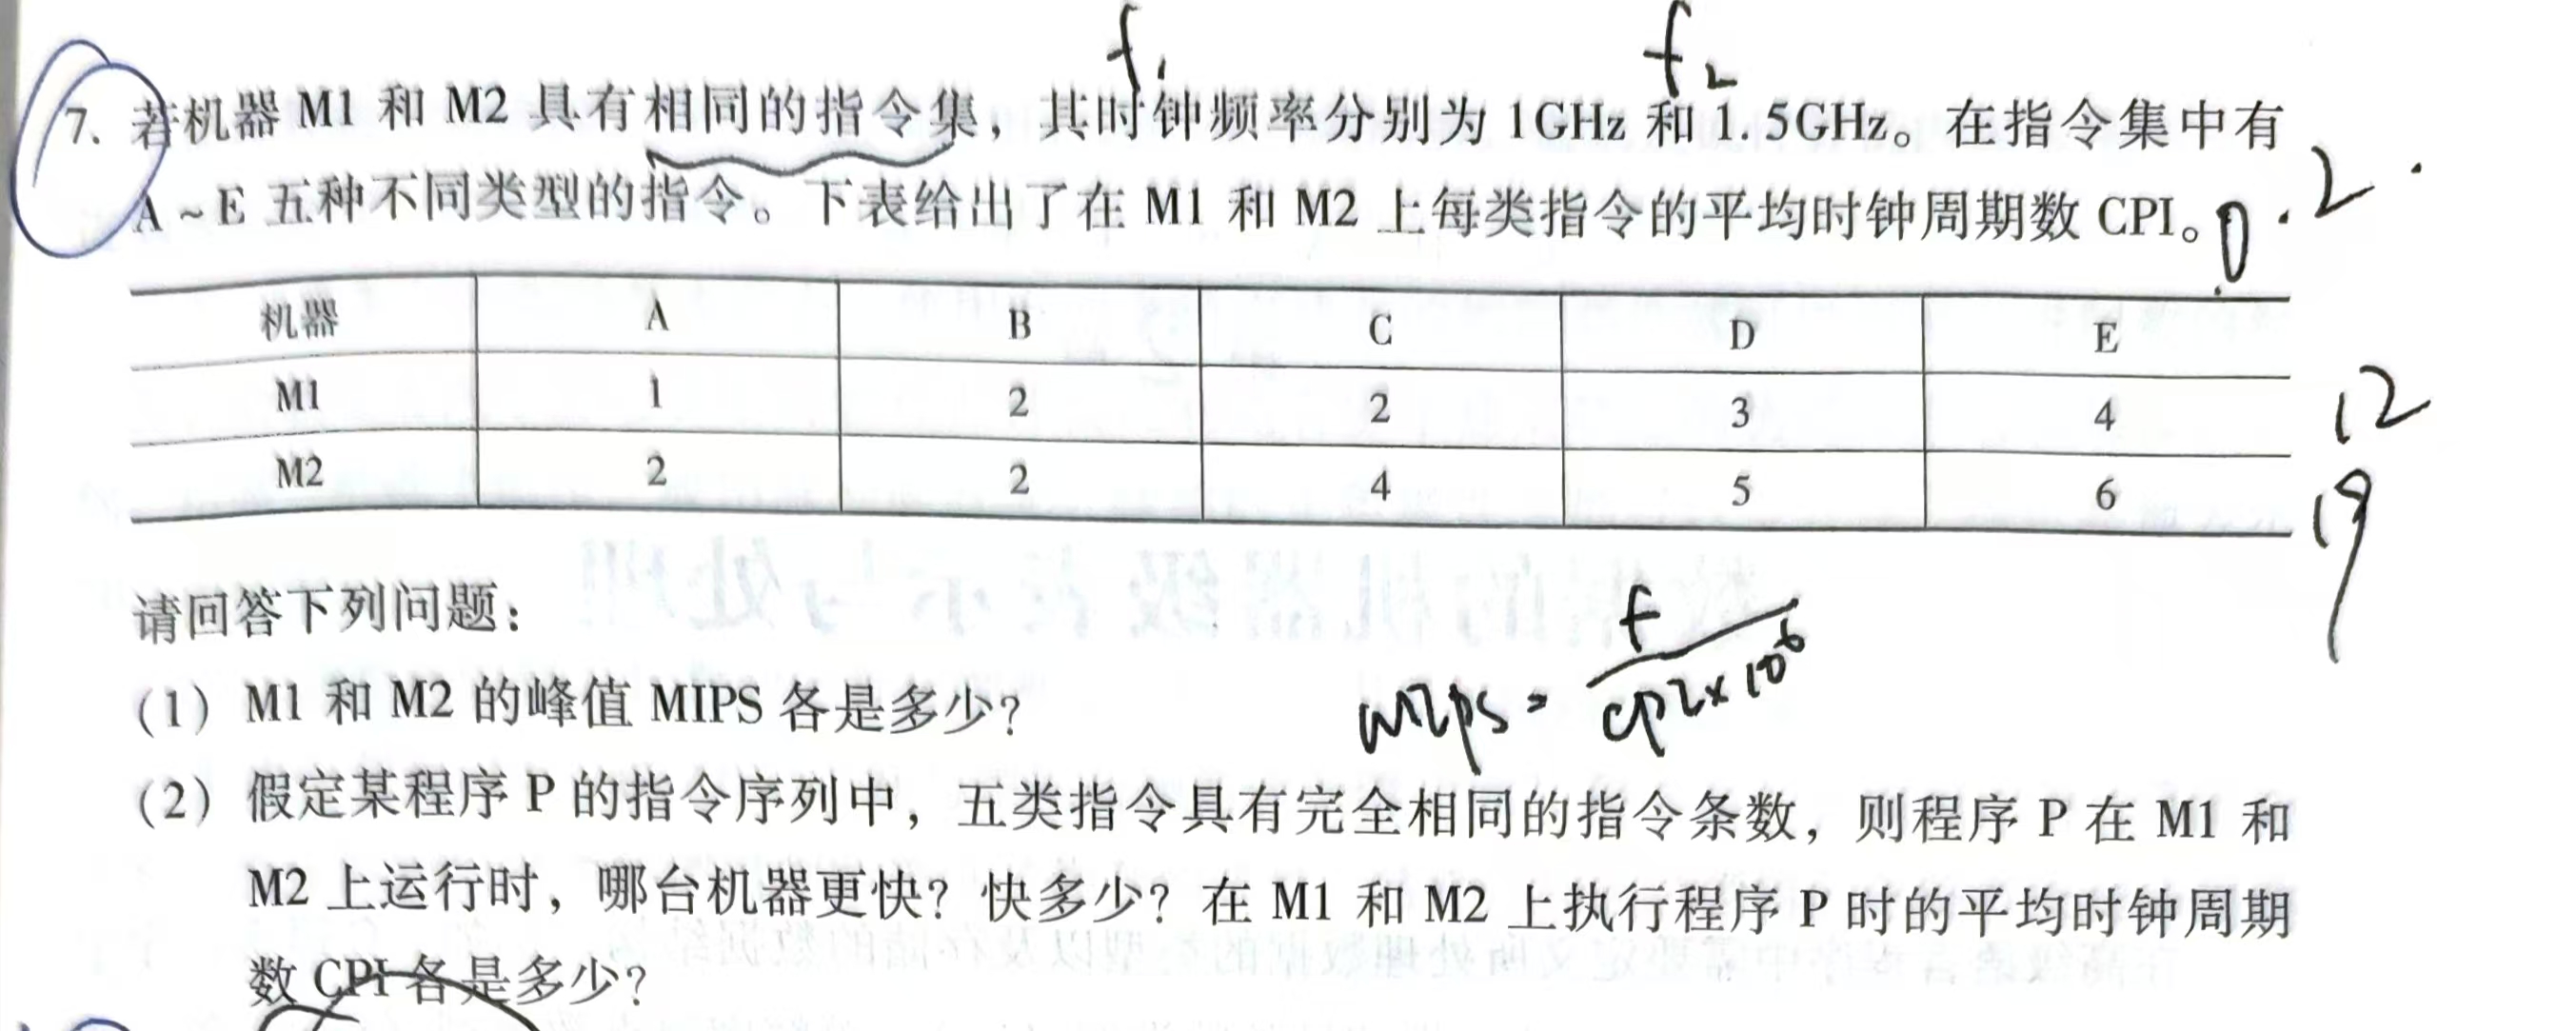 f₁ f₂
7. 若机器 M1 和 M2 具有相同的指令集，其时钟频率分别为 1GHz 和 1.5GHz。在指令集中有
A～E 五种不同类型的指令。下表给出了在 M1 和 M2 上每类指令的平均时钟周期数 CPI。 0.2
机器 A B C D E
M1 1 2 2 3 4 12
M2 2 2 4 5 6 19
请回答下列问题：
(1) M1 和 M2 的峰值 MIPS 各是多少？ mIps = f / CPI×10⁶
(2) 假定某程序 P 的指令序列中，五类指令具有完全相同的指令条数，则程序 P 在 M1 和
M2 上运行时，哪台机器更快？快多少？在 M1 和 M2 上执行程序 P 时的平均时钟周期
数 CPI 各是多少？